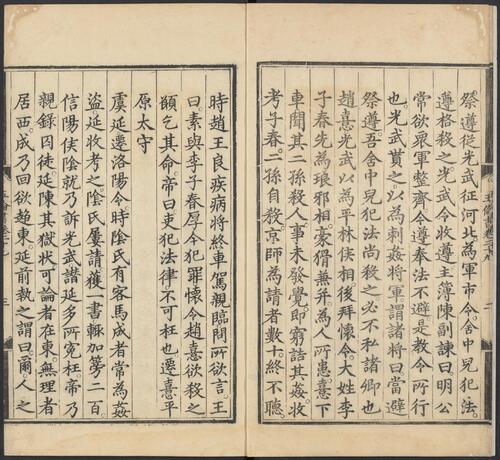 祭遵從光武征河北為軍市令舍中兒犯法
遵格殺之光武令收遵主簿陳副諫曰明公
常欲眾軍整齊令遵奉法不避是教令所行
也光武貰之以為刺姦將軍謂諸將曰當避
祭遵吾舍中兒犯法尚殺之必不私諸卿也
趙憙光武以為平林侯相後拜懷令大姓李
子春先為琅邪相豪猾兼并為人所患憙下
車聞其二孫殺人事未發覺即窮詰其姦收
考子春二孫自殺京師為請者數十終不聽
時趙王良疾病將終車駕親臨問所欲言王
曰素與李子春厚今犯罪懷令趙憙欲殺之
願乞其命帝曰吏犯法律不可枉也遷憙平
原太守
虞延遷洛陽令時陰氏有客馬成者常為姦
盜延收考之陰氏屢請獲一書輒加篣二百
信陽侯陰就乃訴光武譖延多所冤枉帝乃
親錄囚徒延陳其獄狀可論者在東無理者
居西成乃回欲趨東延前執之謂曰爾人之